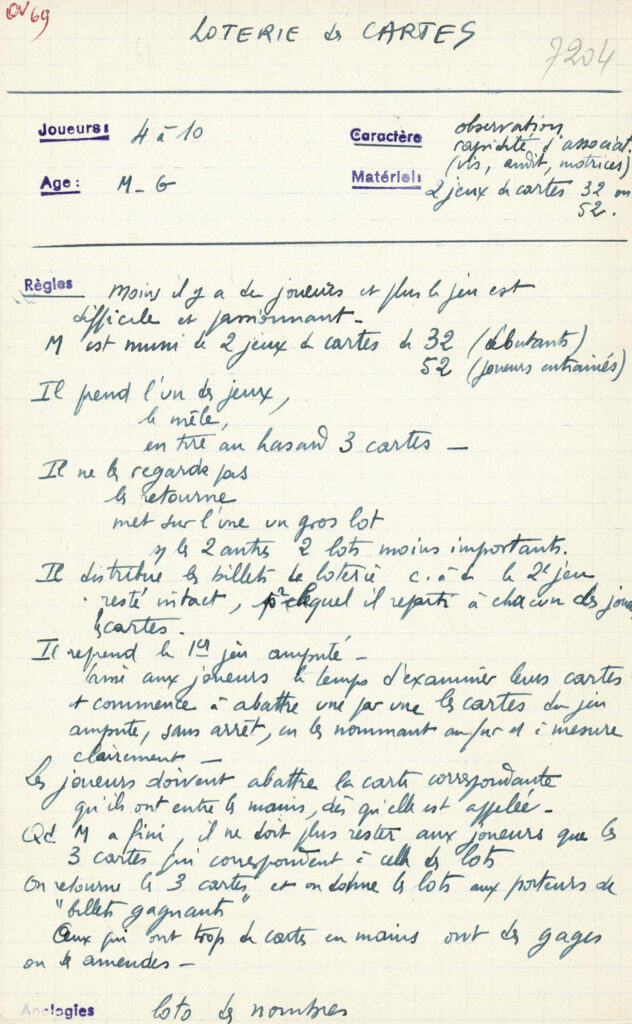 QV 69
LOTERIE de CARTES
7204
Joueurs: 4 à 10
Caractère observation
rapidité d'associat.
(vis, audit, motrices)
Age: M - G
Matériel: 2 jeux de cartes 32 ou
52.
Règles Moins il y a de joueurs et plus le jeu est
difficile et passionnant -
M est muni de 2 jeux de cartes de 32 (débutants)
52 (joueurs entrainés)
Il prend l'un des jeux,
le mêle,
en tire au hasard 3 cartes -
Il ne les regarde pas
les retourne
met sur l'une un gros lot
les 2 autres 2 lots moins importants.
Il distribue les billets de loterie c. à d. le 2e jeu
resté intact, lequel il reparti à chacun des joue
les cartes.
Il reprend le 1er jeu amputé -
laisse aux joueurs le temps d'examiner leurs cartes
+ commence à abattre une par une les cartes du jeu
amputé, sans arrêt, en les nommant au fur et à mesure
clairement -
Les joueurs doivent abattre la carte correspondante
qu'ils ont entre les mains, dès qu'elle est appelée -
Qd M a fini, il ne doit plus rester aux joueurs que les
3 cartes qui correspondent à celles des lots
On retourne les 3 cartes et on donne les lots aux porteurs de
"billets gagnants"
Ceux qui ont trop de cartes en mains ont des gages
ou des amendes -
Analogies loto des nombres